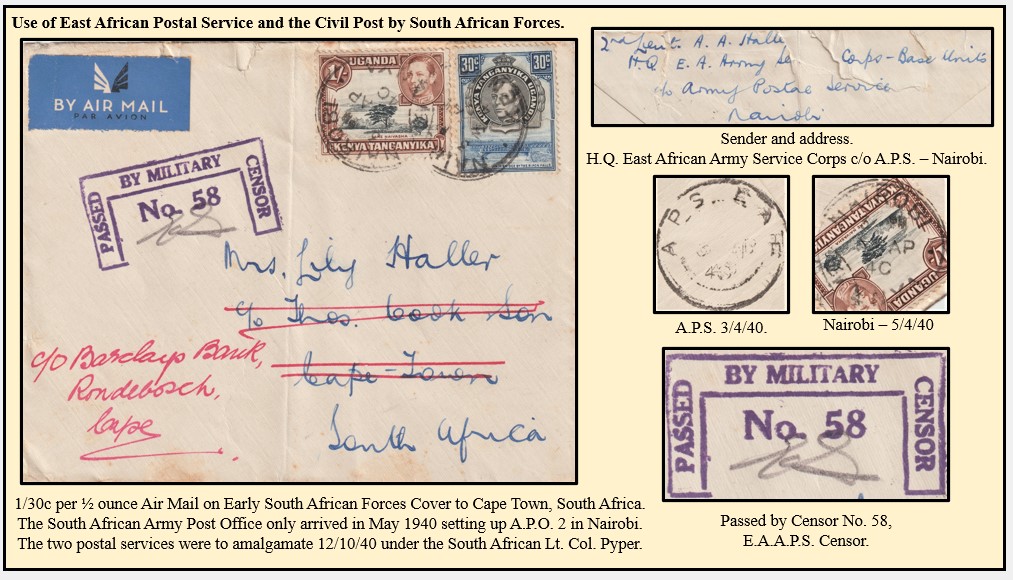 Use of East African Postal Service and the Civil Post by South African Forces.
BY AIR MAIL
PAR AVION
UGANDA
1/-
KENYA TANGANYIKA
30c 30c
KENYA TANGANYIKA UGANDA
NAIROBI
PASSED
BY MILITARY
CENSOR
No. 58
Mrs. Lily Haller
c/o Thos. Cook Son
Cape-Town
South Africa
c/o Barclays Bank,
Rondebosch,
Cape
2nd Lieut. A. A. Halle
H.Q. E. A. Army Se Corps-Base Units
c/o Army Postal Service
Nairobi
Sender and address.
H.Q. East African Army Service Corps c/o A.P.S. – Nairobi.
A.P.S. E A
A.P.S. 3/4/40.
NAIROBI
AP
40
KENYA TANGANYI
UGANDA
Nairobi – 5/4/40
PASSED
BY MILITARY
CENSOR
No. 58
Passed by Censor No. 58,
E.A.A.P.S. Censor.
1/30c per ½ ounce Air Mail on Early South African Forces Cover to Cape Town, South Africa.
The South African Army Post Office only arrived in May 1940 setting up A.P.O. 2 in Nairobi.
The two postal services were to amalgamate 12/10/40 under the South African Lt. Col. Pyper.